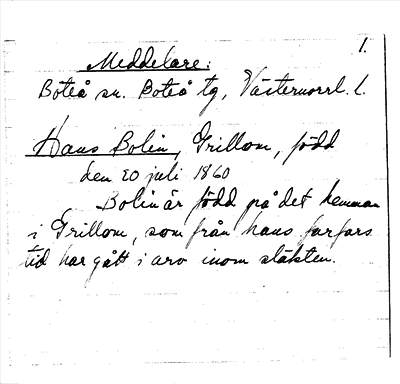 1.
Meddelare:
Boteå sn. Boteå tg, Västernorrl. l.
Hans Bolin, Grillom, född
den 20 juli 1860
Bolin är född på det hemman
i Grillom, som från hans farfars
tid har gått i arv inom släkten.